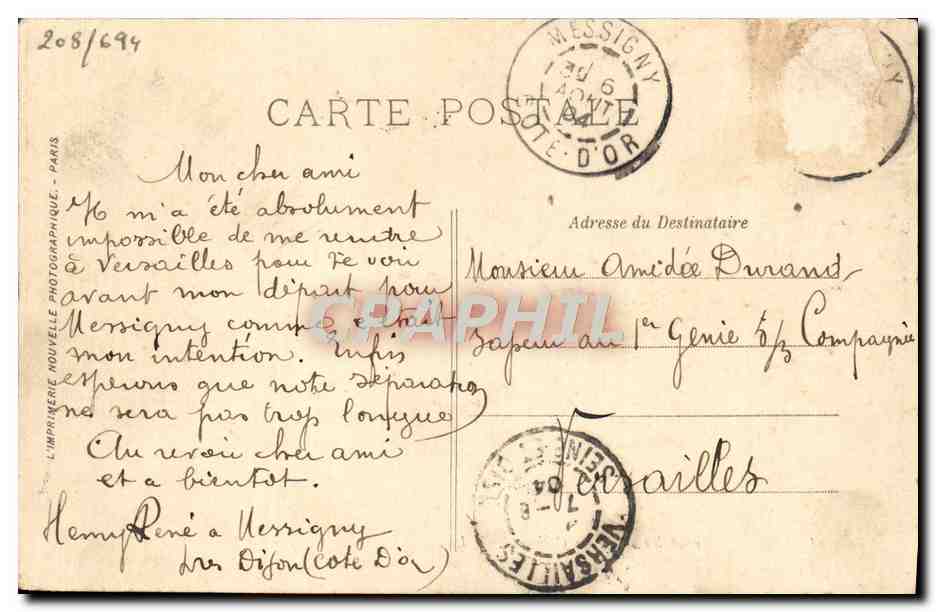 208/694
MESSIGNY
6
AOUT
04
COTE-D'OR
CARTE POSTALE
L'IMPRIMERIE NOUVELLE PHOTOGRAPHIQUE. - PARIS
Mon cher ami
Il m'a été absolument
impossible de me rendre
à Versailles pour te voir
avant mon départ pour
Messigny comme c'était
mon intention. Enfin
esperons que notre séparation
ne sera pas trop longue
Au revoir cher ami
et a bientot.
Henry René a Messigny
près Dijon (Cote D'or)
Adresse du Destinataire
Monsieur Amédée Durand
Sapeur au 1er Génie 5/3 Compagnie
Versailles
VERSAILLES
SEINE ET OISE
7
04
CPAPHIL